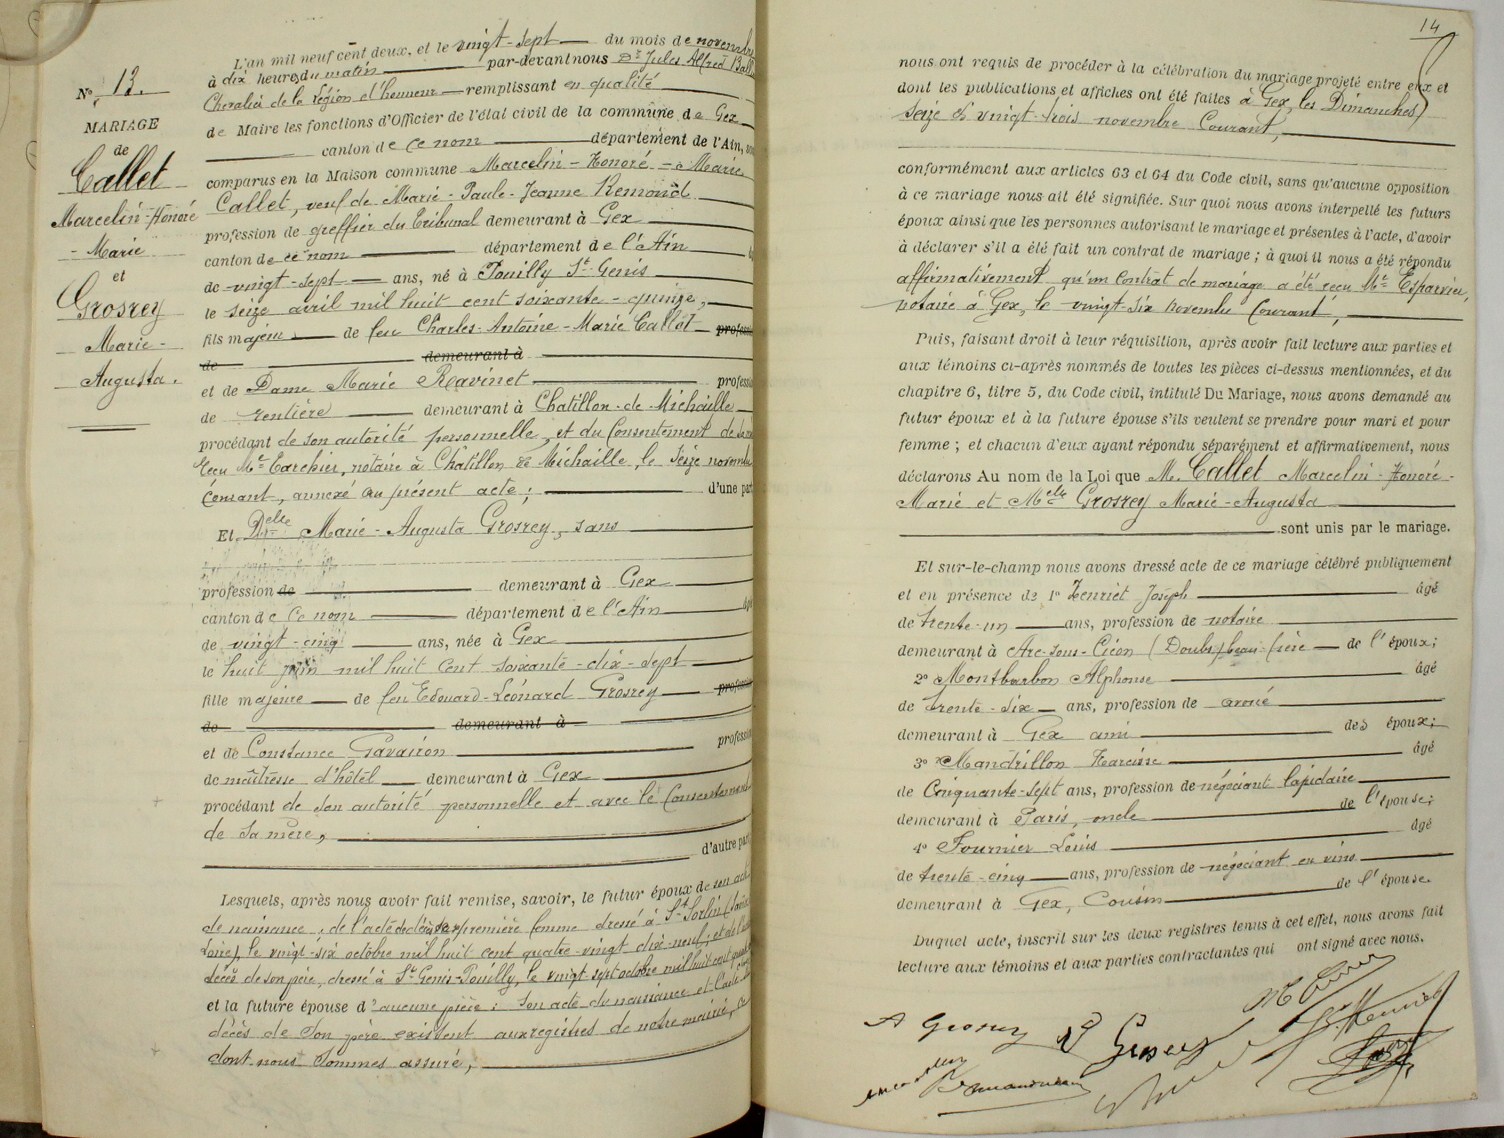 14
N° 13.
MARIAGE
de
Callet
Marcelin-Honoré
- Marie
et
Grosrey
Marie-
Augusta.
L'an mil neuf cent deux, et le vingt-sept du mois de novembre
à dix heures du matin par-devant nous Dr Jules Alfred
Chevalier de la Légion d'honneur remplissant en qualité
de Maire les fonctions d'Officier de l'état civil de la commune de Gex
canton de ce nom département de l'Ain,
comparus en la Maison commune Marcelin-Honoré-Marie
Callet, veuf de Marie-Paule-Jeanne Remond
profession de greffier du Tribunal demeurant à Gex
canton de ce nom département de l'Ain
de vingt-sept ans, né à Pouilly St-Genis
le seize avril mil huit cent soixante-quinze,
fils majeur de feu Charles-Antoine-Marie Callet
de demeurant à
et de Dame Marie Ravinet
de rentière demeurant à Chatillon-de-Michaille
procédant de son autorité personnelle, et du Consentement de
reçu Me notaire à Chatillon de Michaille, le Seize novembre
Courant, annexé au présent acte; d'une part
Et Delle Marie-Augusta Grosrey, sans
profession de demeurant à Gex
canton de ce nom département de l'Ain
de vingt-cinq ans, née à Gex
le huit juin mil huit cent soixante-dix-sept
fille majeure de feu Edouard-Léonard Grosrey
de demeurant à
et de Constance Gavairon
de maîtresse d'hôtel demeurant à Gex
procédant de son autorité personnelle et avec le Consentement
de sa mère,
d'autre part
Lesquels, après nous avoir fait remise, savoir, le futur époux de son acte
de naissance, de l'acte de décès de sa première femme dressé à St-Sorlin
Loire), le vingt-six octobre mil huit cent quatre-vingt dix-neuf; et de
décès de son père, dressé à St-Genis-Pouilly, le vingt sept octobre mil huit cent
et la future épouse d'aucune pièce; son acte de naissance et l'acte de
décès de son père existent aux registres de notre mairie, ce
dont nous sommes assuré,
nous ont requis de procéder à la célébration du mariage projeté entre eux et
dont les publications et affiches ont été faites à Gex, les Dimanches
Seize et vingt-trois novembre Courant,
conformément aux articles 63 et 64 du Code civil, sans qu'aucune opposition
à ce mariage nous ait été signifiée. Sur quoi nous avons interpellé les futurs
époux ainsi que les personnes autorisant le mariage et présentes à l'acte, d'avoir
à déclarer s'il a été fait un contrat de mariage; à quoi il nous a été répondu
affirmativement qu'un contrat de mariage a été reçu Me
notaire à Gex, le vingt-six novembre Courant,
Puis, faisant droit à leur réquisition, après avoir fait lecture aux parties et
aux témoins ci-après nommés de toutes les pièces ci-dessus mentionnées, et du
chapitre 6, titre 5, du Code civil, intitulé Du Mariage, nous avons demandé au
futur époux et à la future épouse s'ils veulent se prendre pour mari et pour
femme; et chacun d'eux ayant répondu séparément et affirmativement, nous
déclarons Au nom de la Loi que M. Callet Marcelin-Honoré-
Marie et Melle Grosrey Marie-Augusta
sont unis par le mariage.
Et sur-le-champ nous avons dressé acte de ce mariage célébré publiquement
et en présence de 1° Henriet Joseph âgé
de trente-un ans, profession de notaire
demeurant à Arc-sous-Cicon (Doubs) beau-frère de l'époux;
2° Montbarbon Alphonse âgé
de trente-six ans, profession de avoué
demeurant à Gex ami des époux;
3° Mandrillon Narcisse âgé
de Cinquante-sept ans, profession de négociant lapidaire
demeurant à Paris, oncle de l'épouse;
4° Fournier Louis âgé
de trente-cinq ans, profession de négociant en vins
demeurant à Gex, Cousin de l'épouse.
Duquel acte, inscrit sur les deux registres tenus à cet effet, nous avons fait
lecture aux témoins et aux parties contractantes qui ont signé avec nous.
A Grosrey
Grosrey